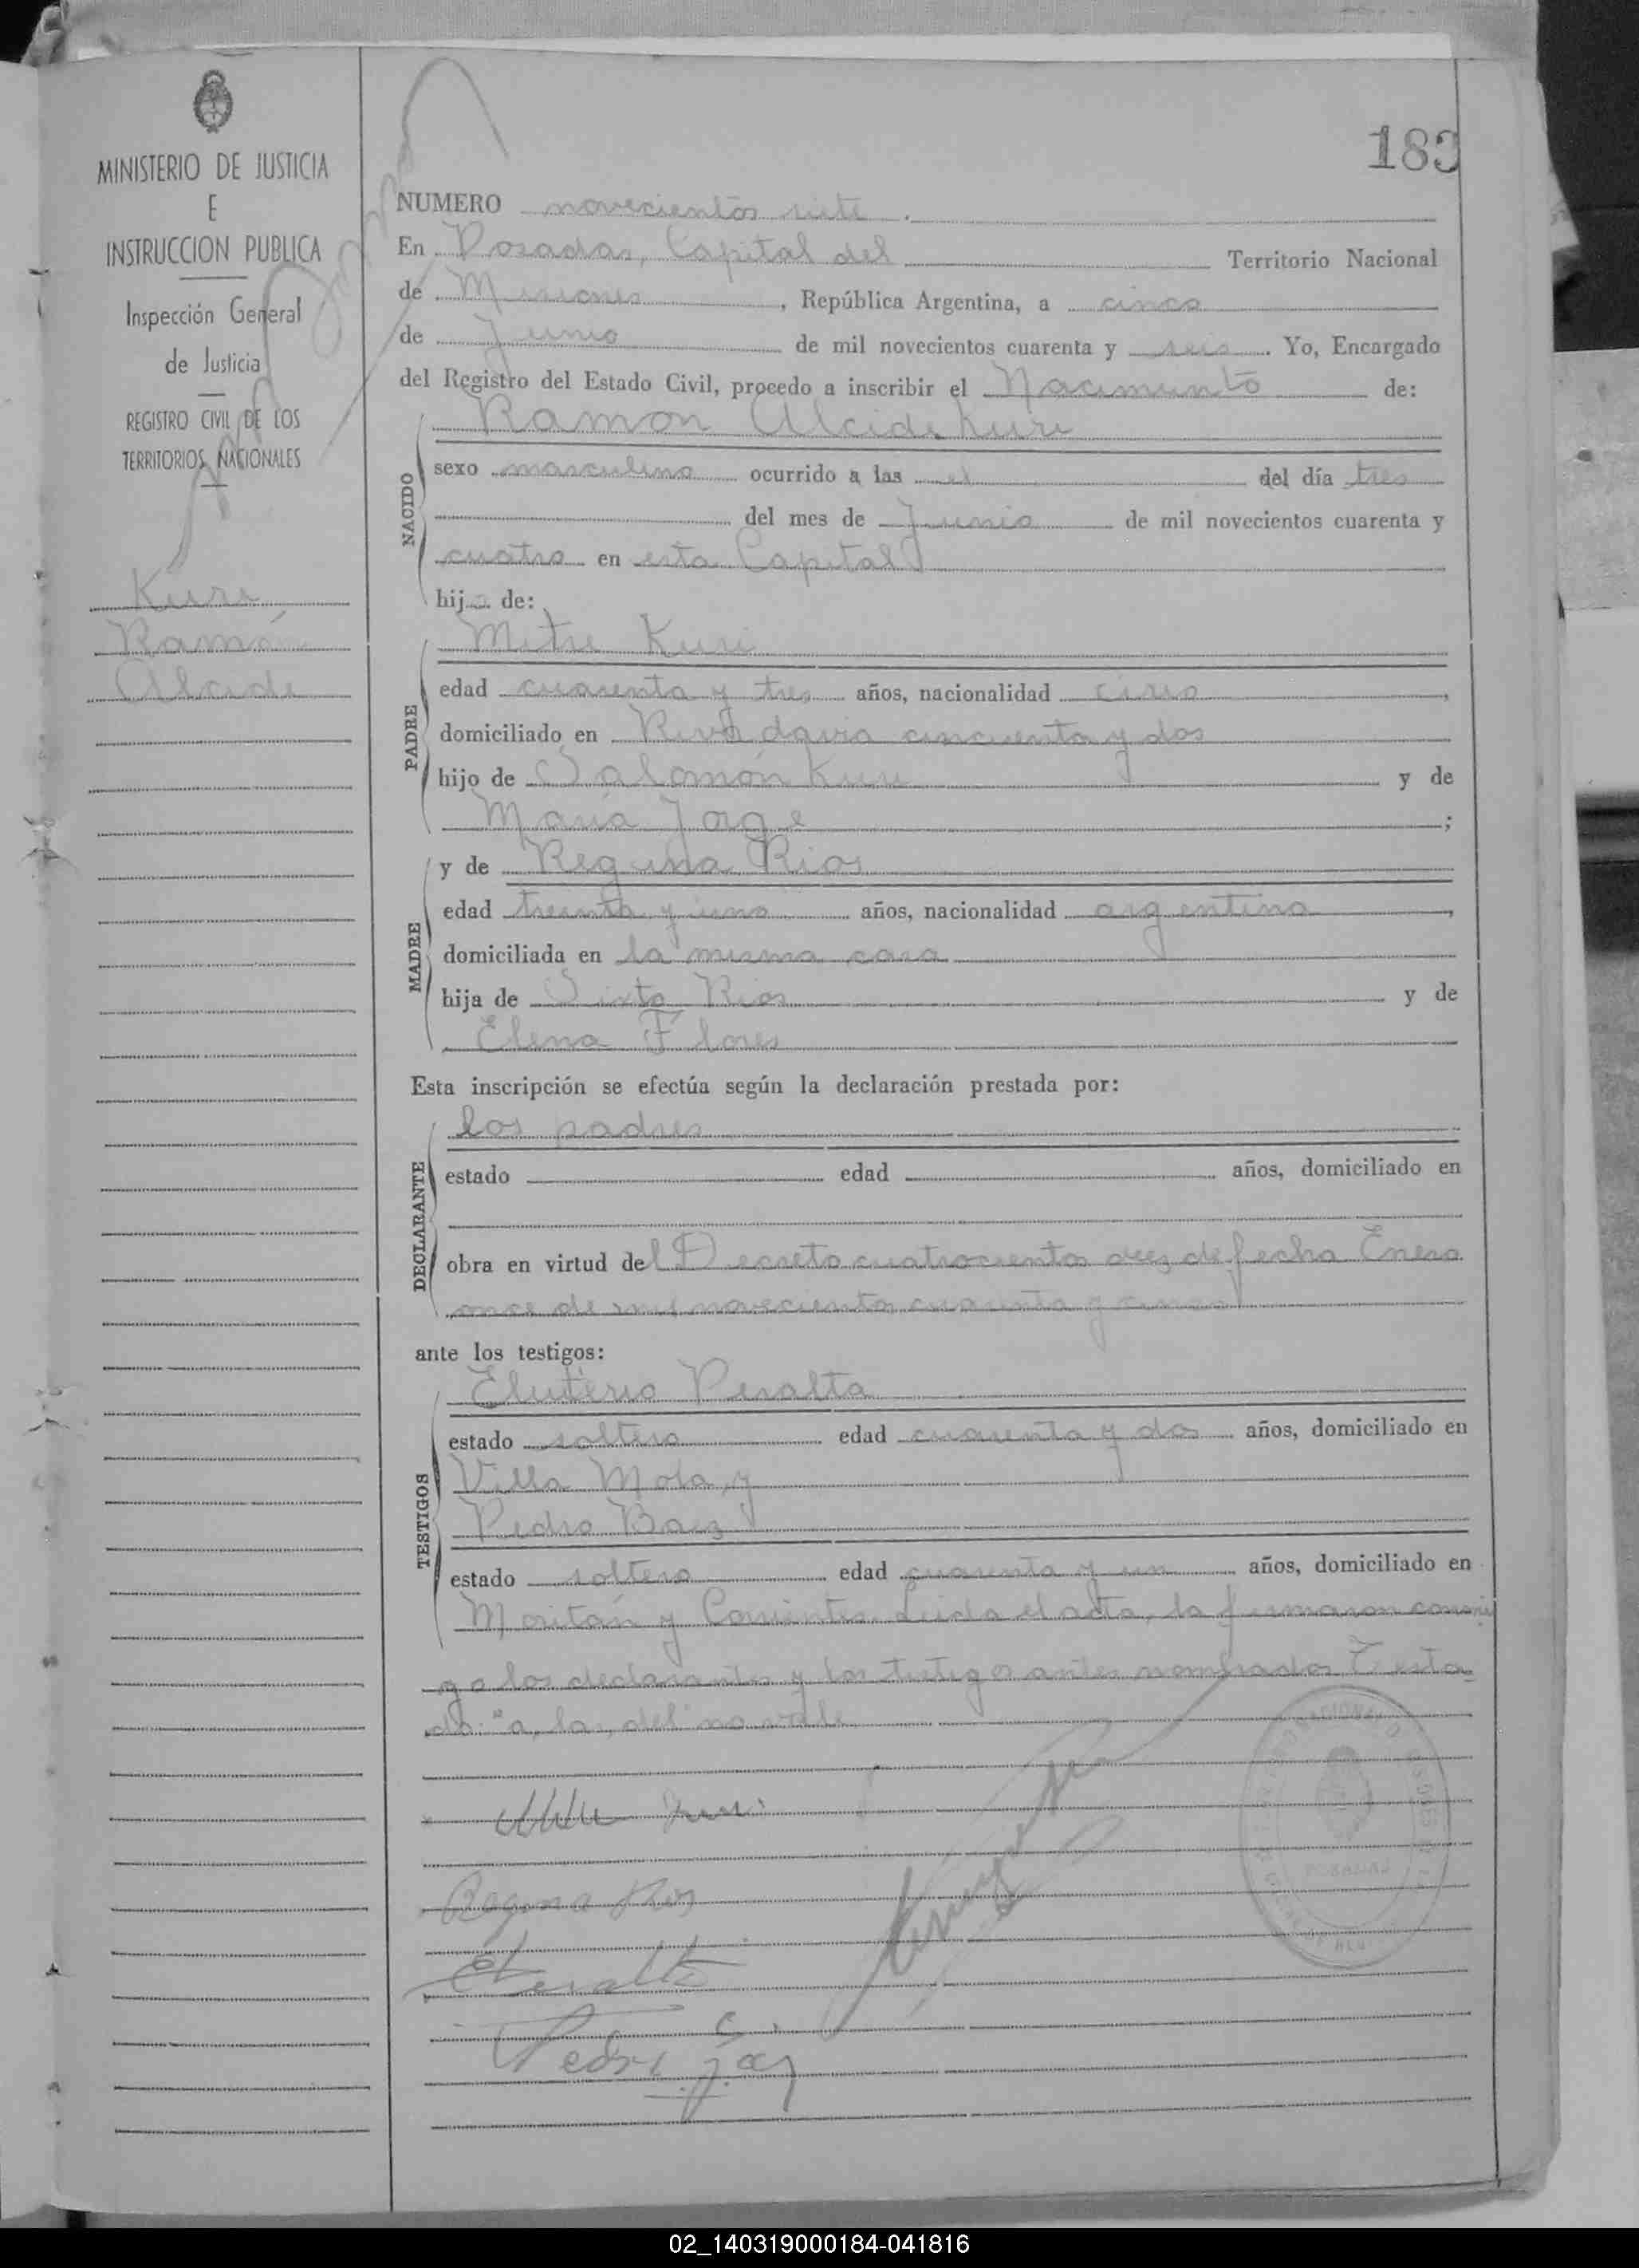 MINISTERIO DE JUSTICIA
E
INSTRUCCION PUBLICA
Inspección General
de Justicia
REGISTRO CIVIL DE LOS
TERRITORIOS NACIONALES
Kuri
Ramón
Alcide
183
NUMERO novecientos siete.
En Posadas, Capital del Territorio Nacional
de Misiones, República Argentina, a cinco
de Junio de mil novecientos cuarenta y seis. Yo, Encargado
del Registro del Estado Civil, procedo a inscribir el Nacimiento de:
Ramon Alcide Kuri
NACIDO
sexo masculino ocurrido a las el del día tres
del mes de Junio de mil novecientos cuarenta y
cuatro en esta Capital
hijo de:
Mitre Kuri
PADRE
edad cuarenta y tres años, nacionalidad sirio,
domiciliado en Rivadavia cincuenta y dos
hijo de Salomón Kuri y de
María Jorge;
y de Regina Rios
MADRE
edad treinta y uno años, nacionalidad argentina,
domiciliada en la misma casa
hija de Sixto Rios y de
Elena Flores
Esta inscripción se efectúa según la declaración prestada por:
los padres
DECLARANTE
estado edad años, domiciliado en
obra en virtud del Decreto cuatrocientos diez de fecha Enero
once de mil novecientos cuarenta y cinco
ante los testigos:
Eluterio Peralta
TESTIGOS
estado soltero edad cuarenta y dos años, domiciliado en
Villa Mola, y
Pedro Baez
estado soltero edad cuarenta y un años, domiciliado en
Moritán y Corrientes. Leida el acta, la firmaron conmi
go los declarantes y los testigos antes nombrados Testa
do: "a, la, del" no vale
Mitre Kuri
Regina Rios
EPeralta
Pedro
POSADAS
02_140319000184-041816